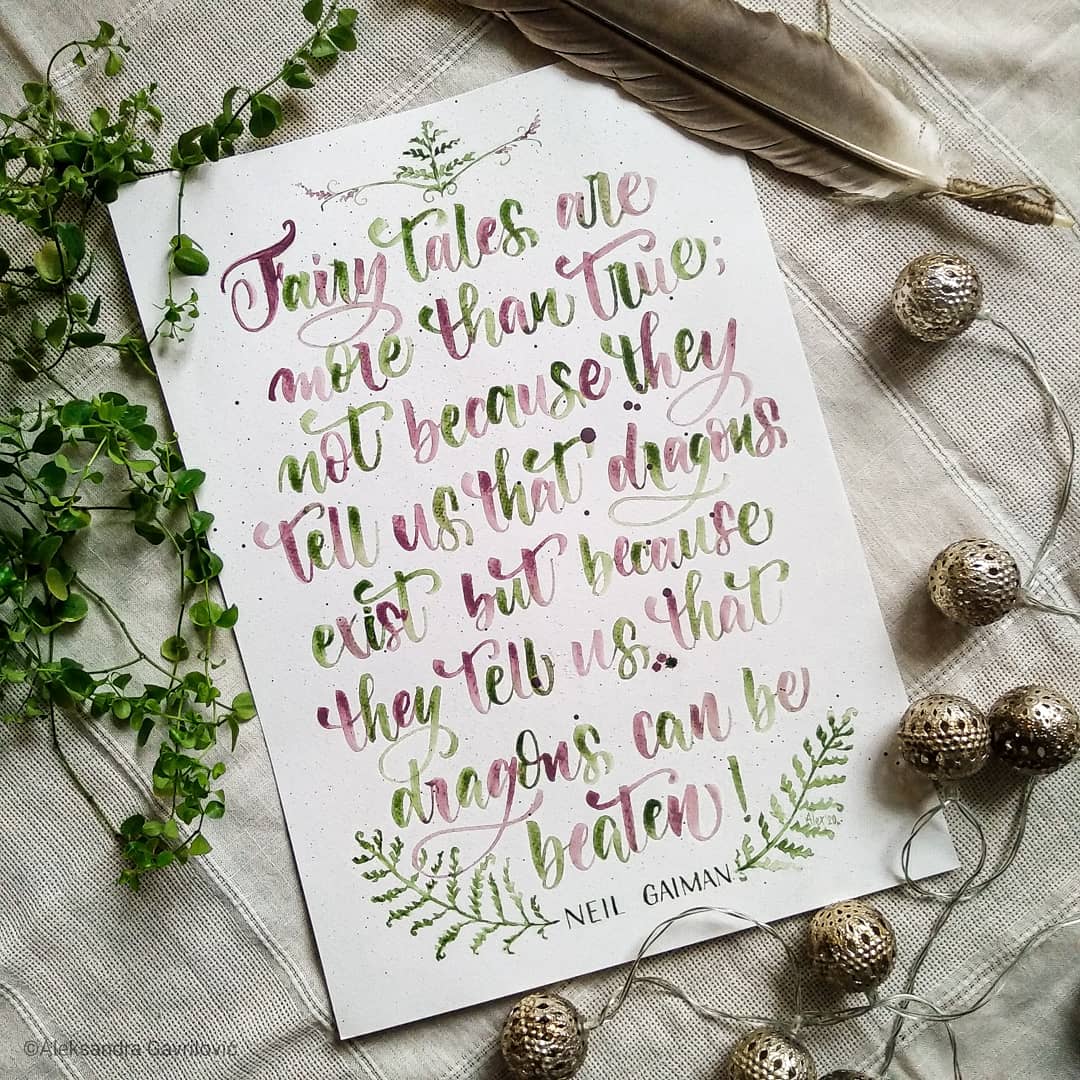 Fairy tales are
more than true;
not because they
tell us that dragons
exist but because
they tell us that
dragons can be
beaten!
Alex '20.
NEIL GAIMAN
©Aleksandra Gavrilović